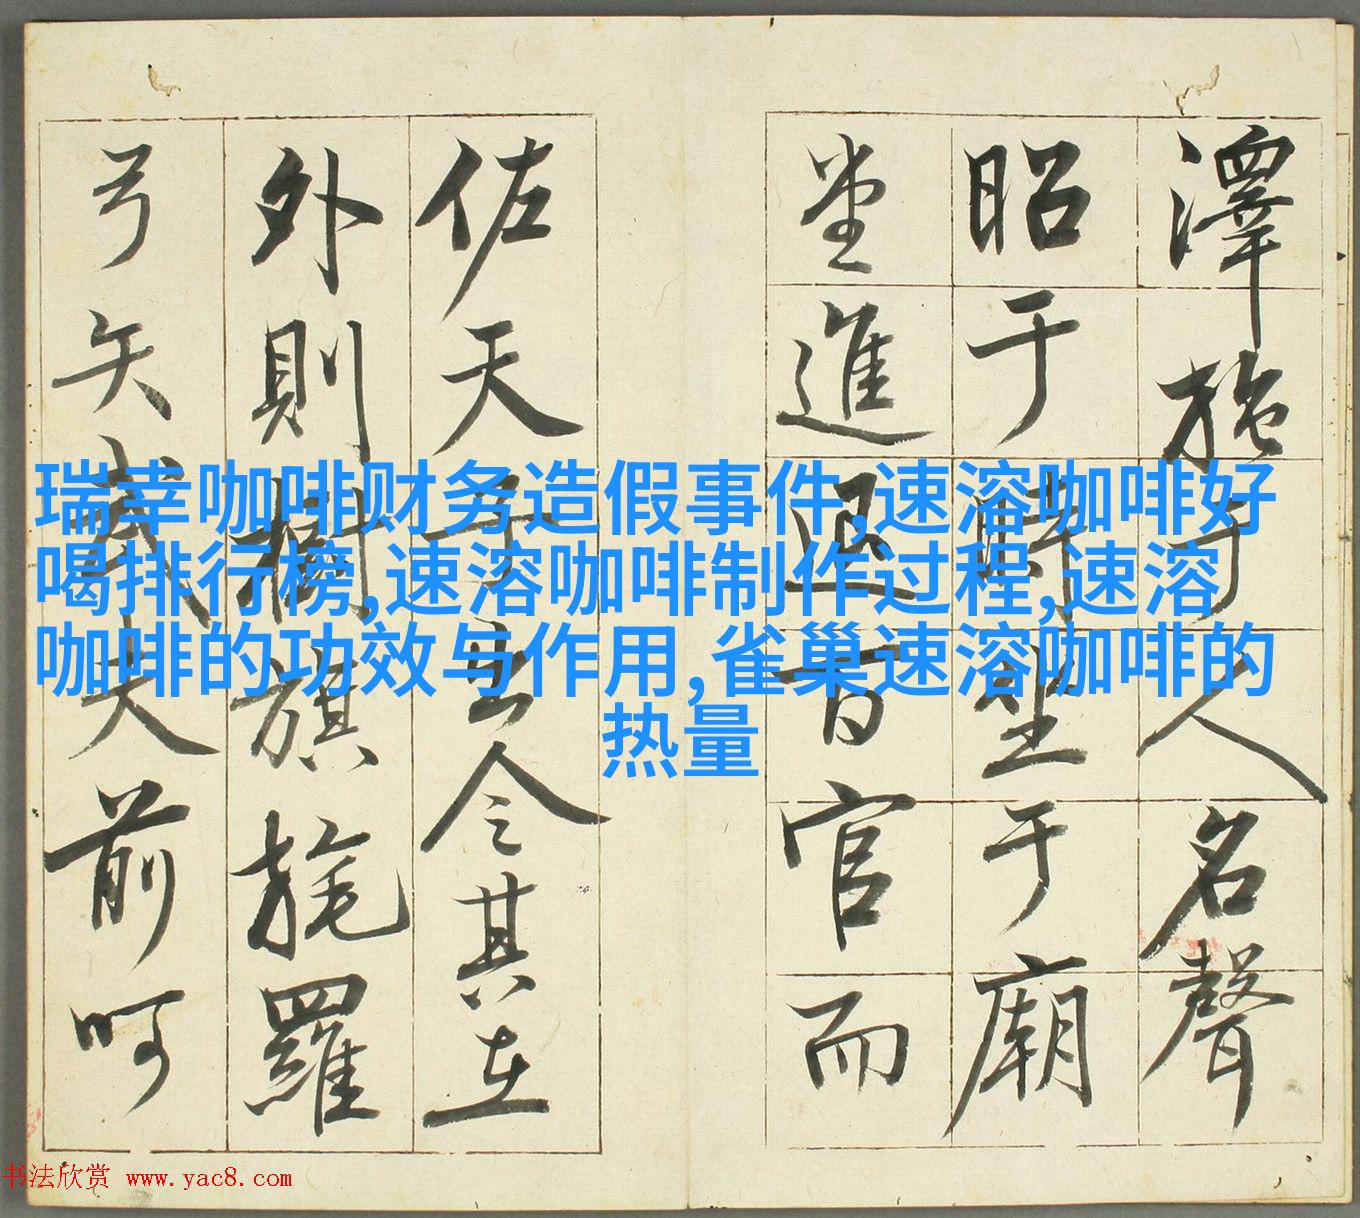 澤施于人名聲
昭于時坐于廟
堂進退百官而
佐天子出令其在
外則樹旗旄羅
弓矢武夫前呵
瑞幸咖啡财务造假事件,速溶咖啡好
喝排行榜,速溶咖啡制作过程,速溶
咖啡的功效与作用,雀巢速溶咖啡的
热量
书法欣赏 www.yac8.com